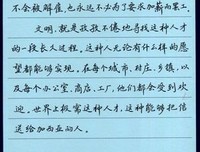 不会被解雇,也永远不必为了要求加薪而罢工。
文明,就是孜孜不倦地寻找这种人才
的一段长久过程。这种人无论有什么样的愿
望都能够实现。在每个城市、村庄、乡镇,以
及每个办公室、商店、工厂,他们都会受到欢
迎。世界上极需这种人才,这种能够把信
送给加西亚的人。